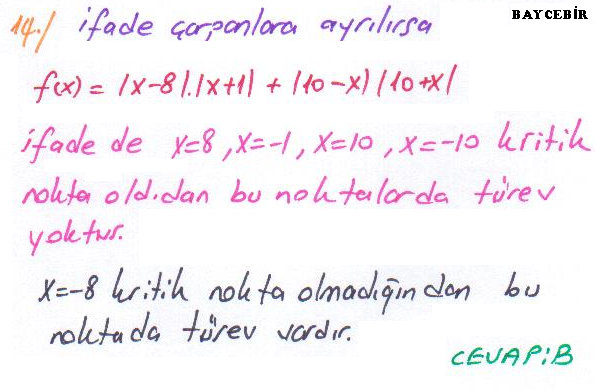 BAYCEBİR
14./ ifade çarpanlara ayrılırsa
f(x) = |x-8|.|x+1| + |10-x||10+x|
ifade de x=8, x=-1, x=10, x=-10 kritik
nokta old.dan bu noktalarda türev
yoktur.
x=-8 kritik nokta olmadığından bu
noktada türev vardır.
CEVAP:B